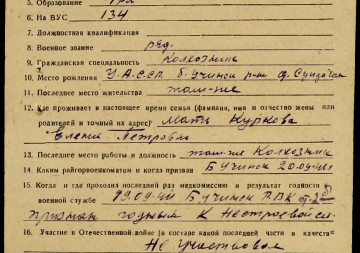 5. Образование
6. На ВУС 134
7. Должностная квалификация
8. Военное звание ряд.
9. Гражданская специальность Колхозник
10. Место рождения У.А.С.С.Р. б. Учинск р-н д.
11. Последнее место жительства там-же
12. Где проживает в настоящее время семья (фамилия, имя и отчество жены или
родителей и точный их адрес) мать Куркова
Елена Петровна
13. Последнее место работы и должность там-же Колхозник
14. Каким райгорвоенкоматом и когда призван
15. Когда и где проходил последний раз медкомиссию и результат годности к
военной службе РВК
признан годным к нестроевой сл.
16. Участие в Отечественной войне (в составе какой последней части в качестве
Не участвовал